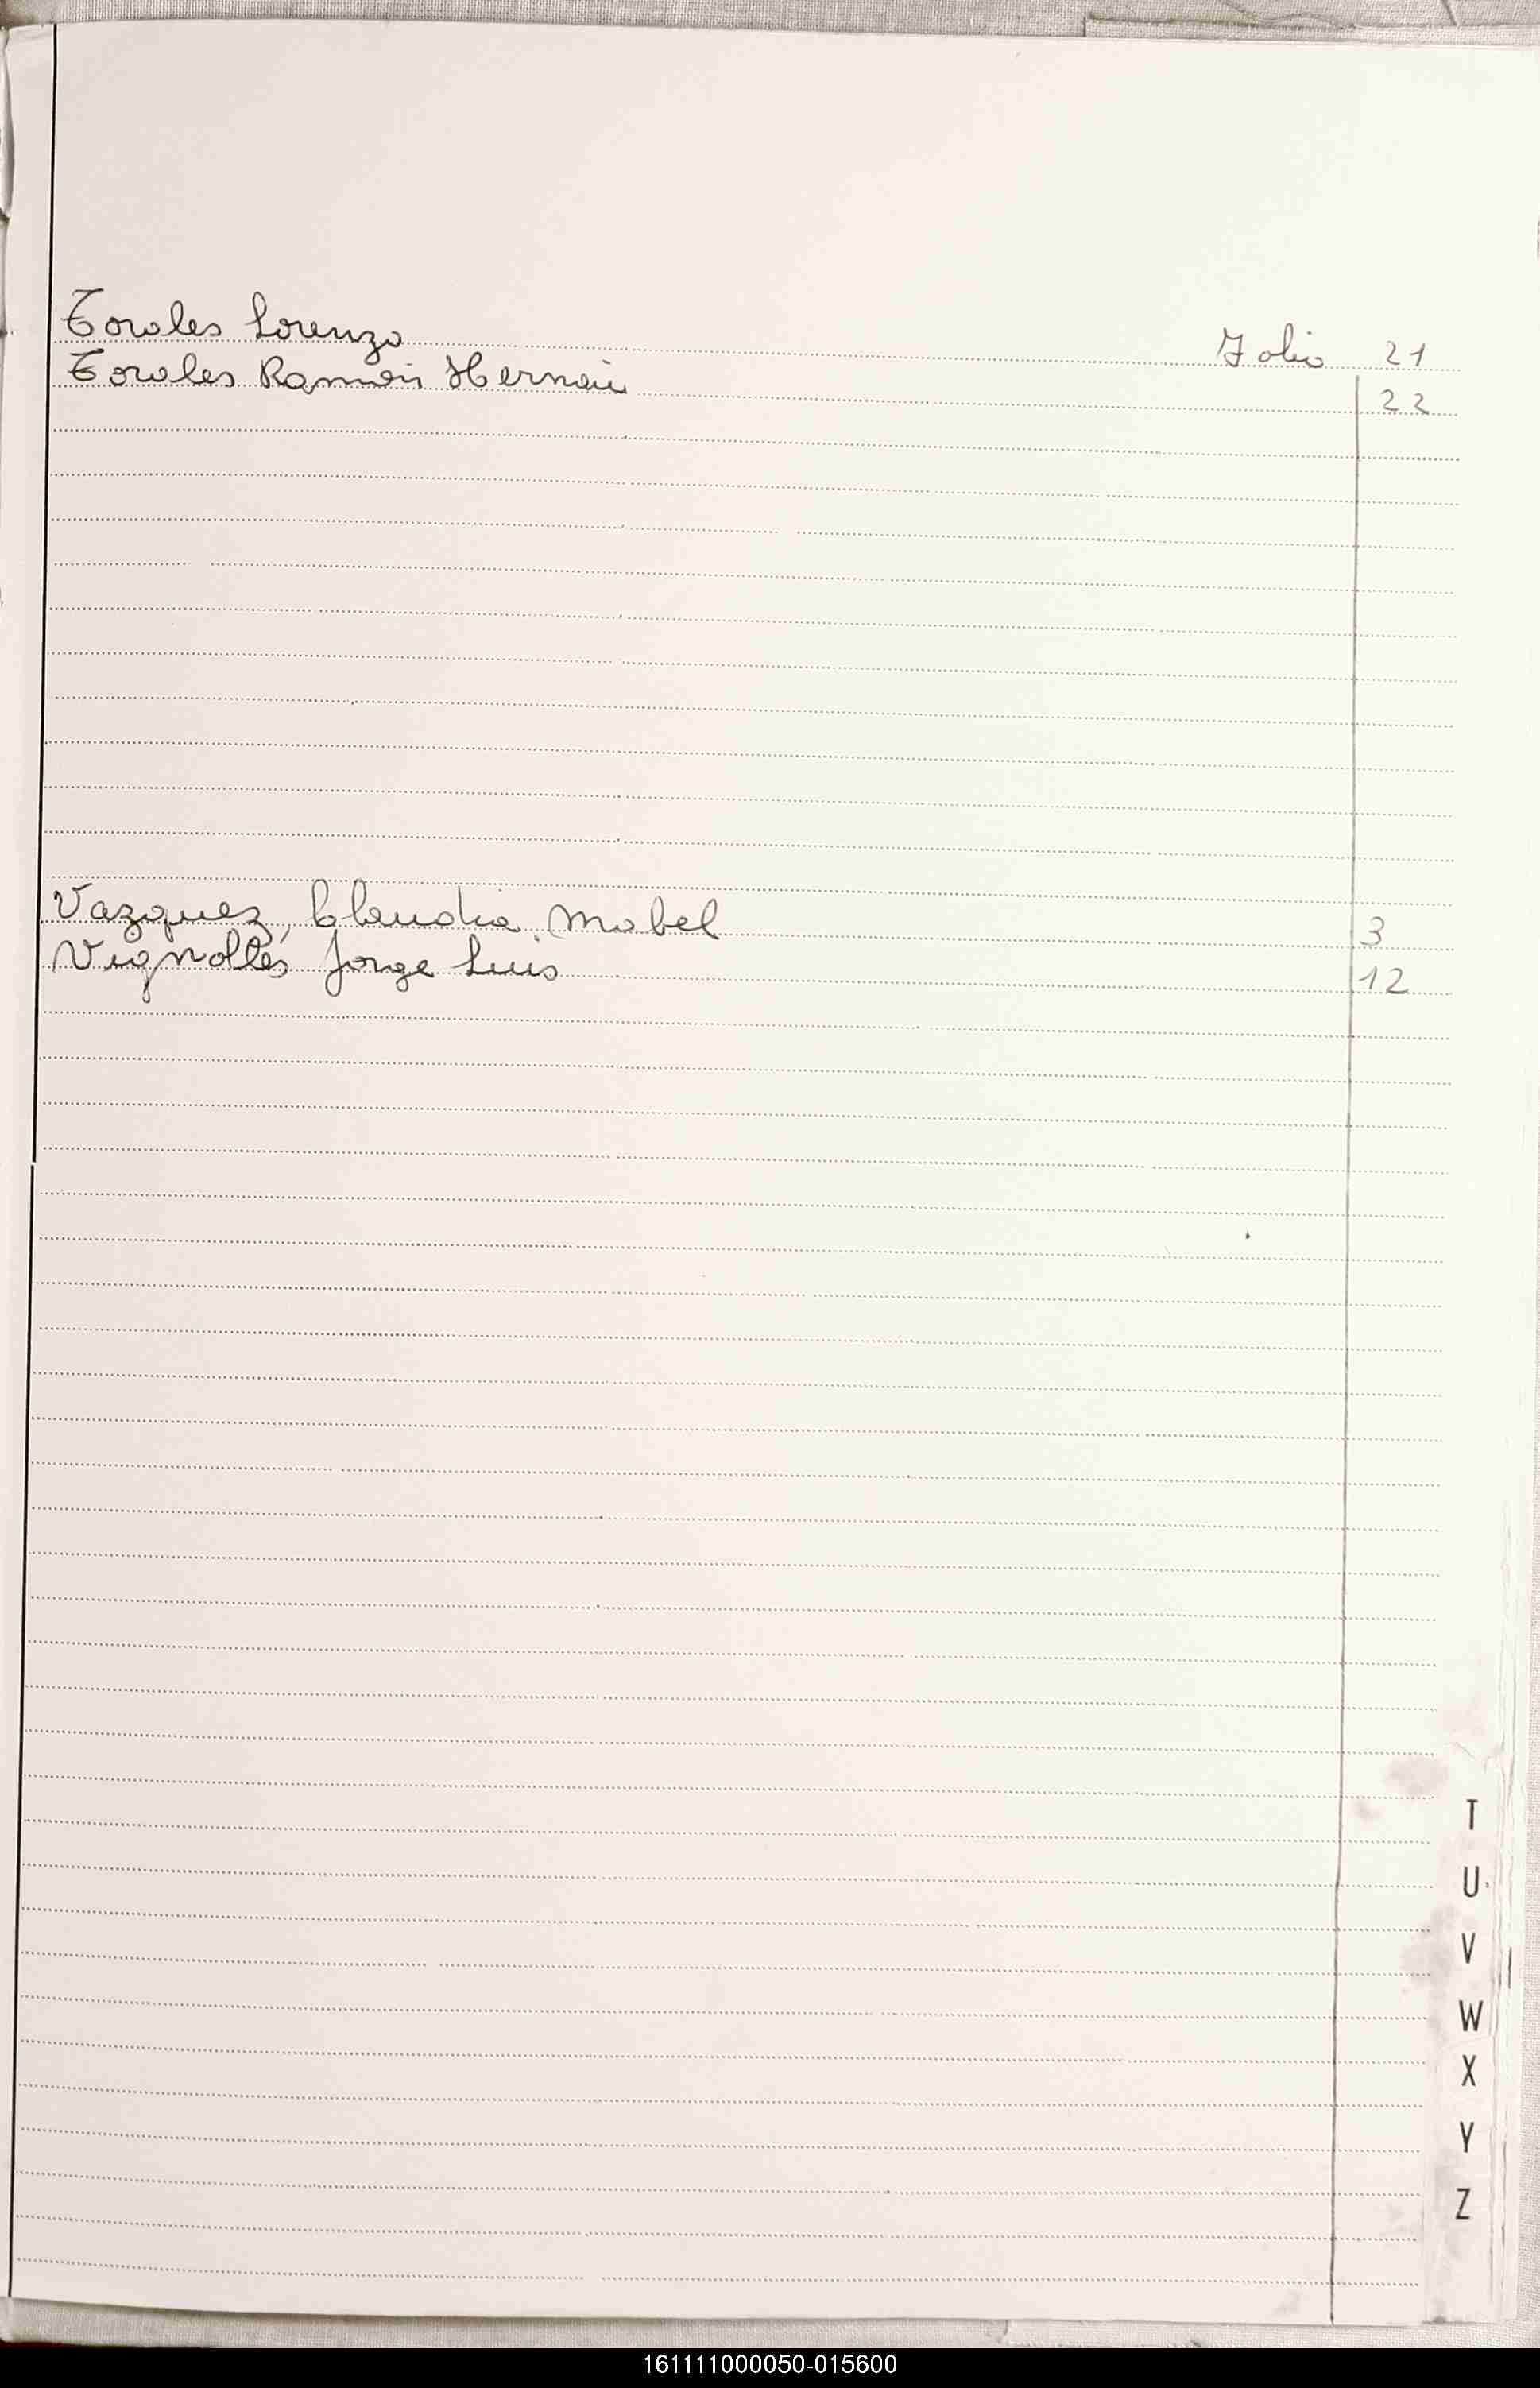 Toroles Lorenzo Folio 21
Toroles Ramón Hernán 22
Vazquez, Claudia Mabel 3
Vignolles Jorge Luis 12
T
U
V
W
X
Y
Z
161111000050-015600